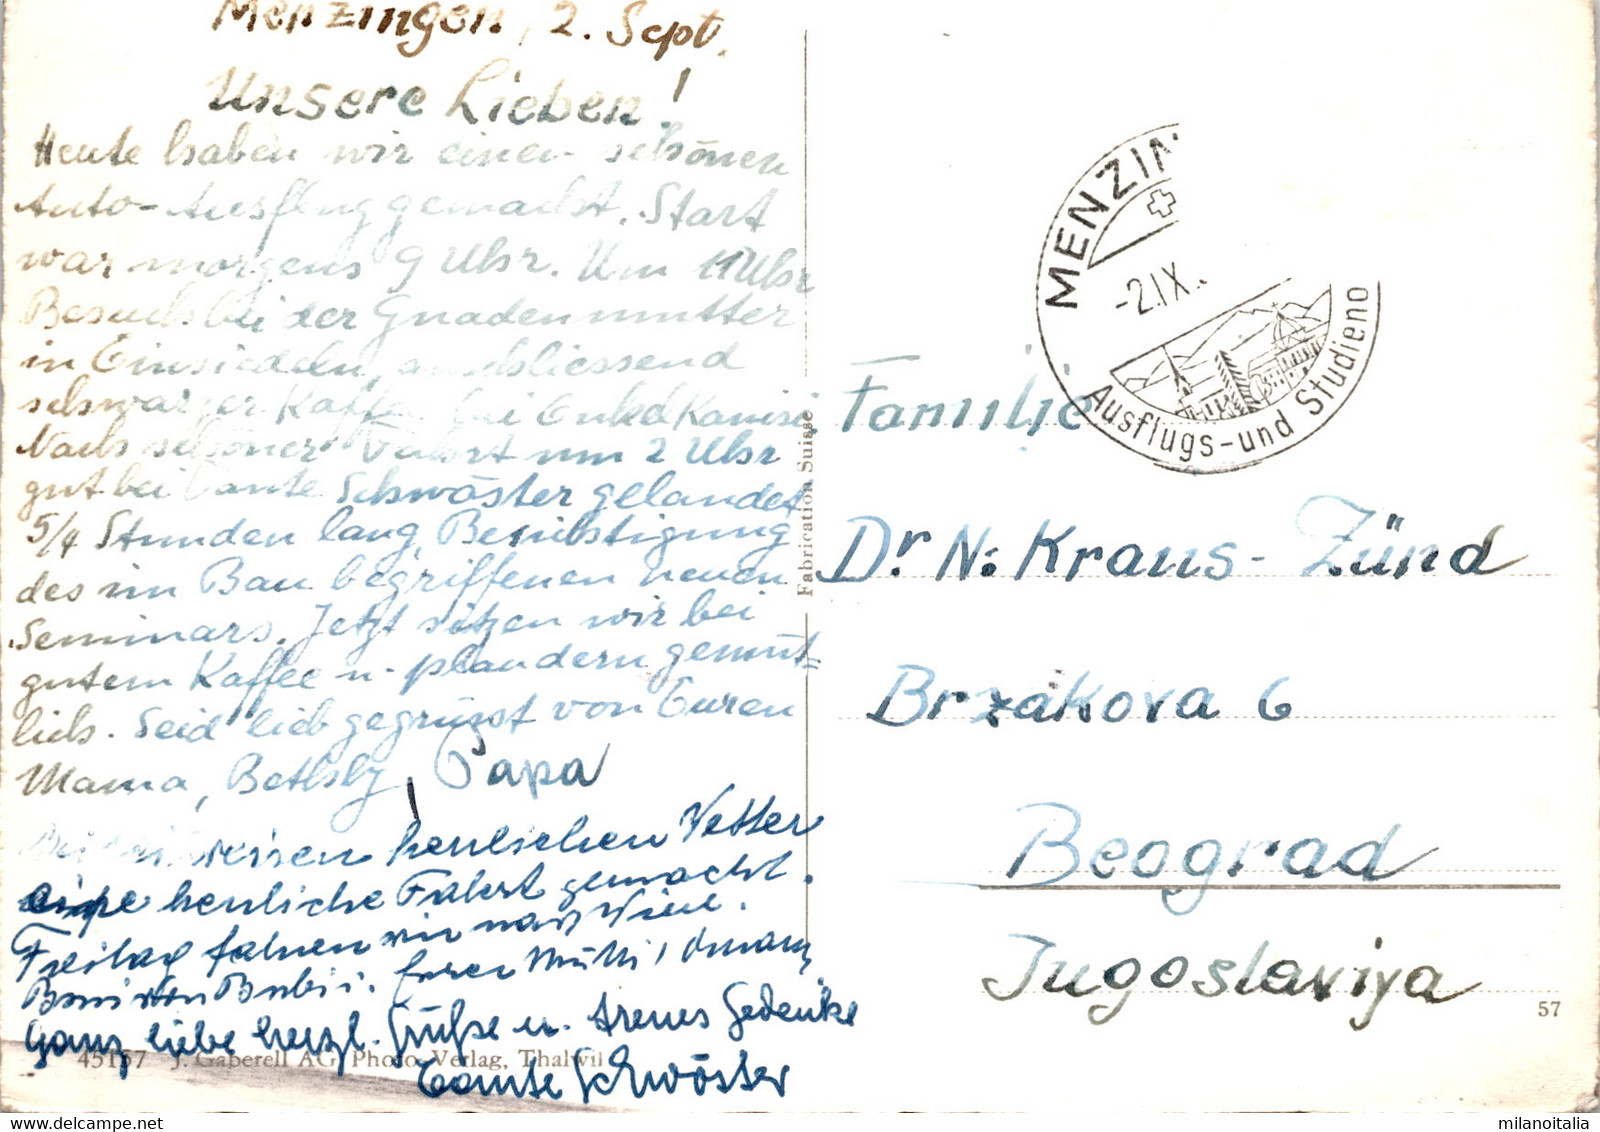 Menzingen, 2. Sept.
Unsere Lieben!
Heute haben wir einen schönen
Auto-Ausflug gemacht. Start
war morgens 9 Uhr. Um 11 Uhr
Besuch bei der Gnadenmutter
in Einsiedeln, anschliessend
schwarzer Kaffee bei Onkel
Nach schöner Fahrt um 2 Uhr
gut bei Tante Schwöster gelandet
5/4 Stunden lang Besichtigung
des im Bau begriffenen neuen
Seminars. Jetzt sitzen wir bei
gutem Kaffee u. plaudern gemüt=
lich. Seid lieb gegrüsst von Euren
Mama, Bethly, Papa
herrlichen Wetter
eine herrliche Fahrt gemacht.
Freitag fahren wir nach
Bubi
Ganz liebe herzl. Grüße u. treues Gedenke
Tante Schwöster
45157 J. Gaberell AG, Photo-Verlag, Thalwil
Fabrication Suisse
MENZIN
-2.IX.
Ausflugs-und Studieno
Familie
Dr. N. Kraus-Zünd
Brzakova 6
Beograd
Jugoslavija
57
milanoitalia